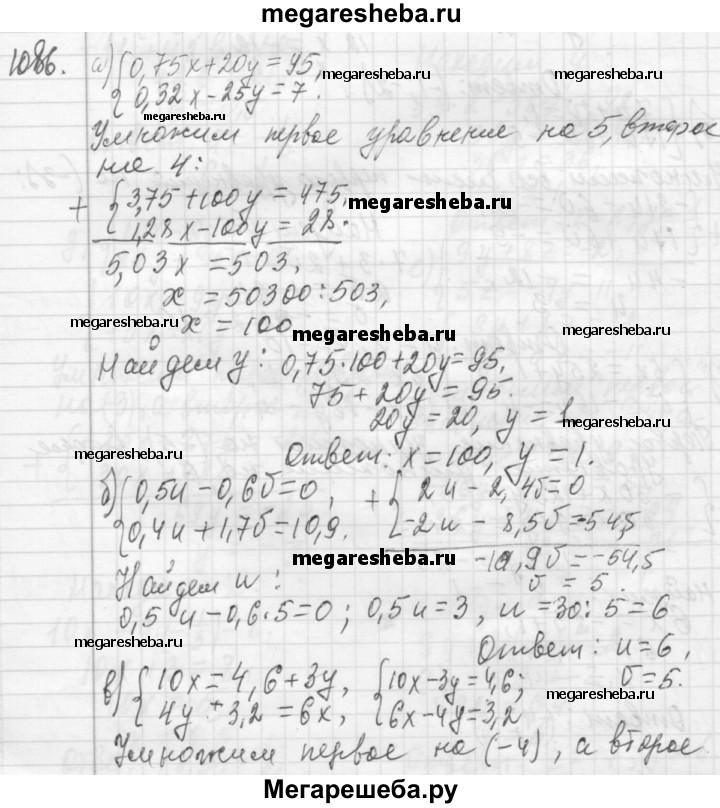 megaresheba.ru
1086. а) {0,75x+20y=95,
{0,32x-25y=7.
megaresheba.ru
megaresheba.ru
Умножим первое уравнение на 5, второе
на 4:
+ {3,75+100y=475,
{1,28x-100y=28.
megaresheba.ru
5,03x=503,
x=50300:503,
x=100
megaresheba.ru
megaresheba.ru
megaresheba.ru
Найдем y: 0,75·100+20y=95,
75+20y=95.
20y=20, y=1
megaresheba.ru
megaresheba.ru
Ответ: x=100, y=1.
б) {0,5u-0,6б=0, + {2u-2,4б=0
{0,4u+1,7б=10,9. {-2u-8,5б=-54,5
megaresheba.ru
megaresheba.ru
-10,9б=-54,5
б=5.
Найдем u:
0,5u-0,6·5=0; 0,5u=3, u=30:5=6
megaresheba.ru
Ответ: u=6,
б=5.
в) {10x=4,6+3y, {10x-3y=4,6;
{4y+3,2=6x, {6x-4y=3,2
megaresheba.ru
megaresheba.ru
Умножим первое на (-4), а второе
Мегарешеба.ру